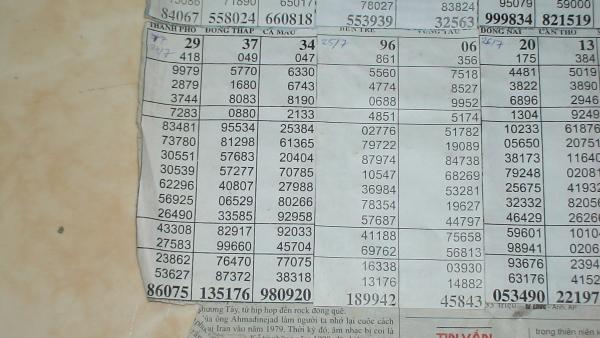 71890 65017 78027 83824 95079 59000
84067 558024 660818 553939 32563 999834 821519
THÀNH PHỐ ĐỒNG THÁP CÀ MAU BẾN TRE VŨNG TÀU ĐỒNG NAI CẦN THƠ
25/7 26/7
29 37 34 96 06 20 13
418 049 047 861 356 175 384
9979 5770 6330 5560 7518 4481 5019
2879 1680 6743 4774 8527 3822 3890
3744 8083 8190 0688 9952 6896 2946
7283 0880 2133 4851 5174 1304 9249
83481 95534 25384 02776 51782 10233 61876
73780 81298 61365 79722 19089 05650 20751
30551 57683 20404 87974 84738 38173 11640
30539 57277 70785 10547 68269 79248 0208
62296 40807 27988 36984 53281 25675 41932
56925 06529 80266 78354 19627 32332 82056
26490 33585 92958 57687 44797 46429 26266
43308 82917 92033 41188 75658 59601 1010
27583 99660 45704 69762 56813 98941 0206
23862 76470 77075 16338 03930 93676 2394
53627 87372 38318 13176 14882 63176 4152
86075 135176 980920 189942 45843 053490 22197
phương Tây, từ hip hop đến rock đồng quê.
của ông Ahmadinejad làm người ta nhớ lại cuộc cách
Iran vào năm 1979. Thời kỳ đó, âm nhạc bị coi là
TIN VẮN
trong thiên niên k